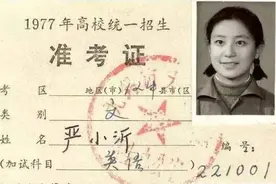 1977年高校统一招生
准考证
考 区 地区(市) 县市(区
类 别 文
姓 名 严小沂 编号:
(加试科目 英语 ) 221001